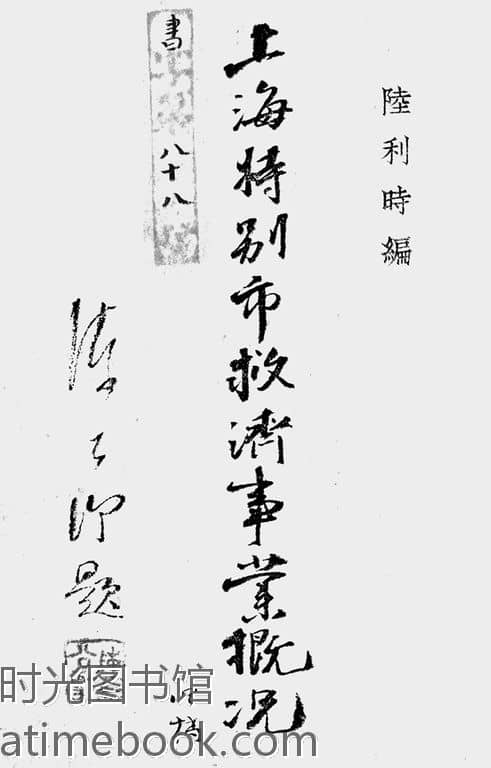 陸利時編
上海特別市救濟事業概況
陳公博題
書
八十八
时光图书馆
atimebook.com